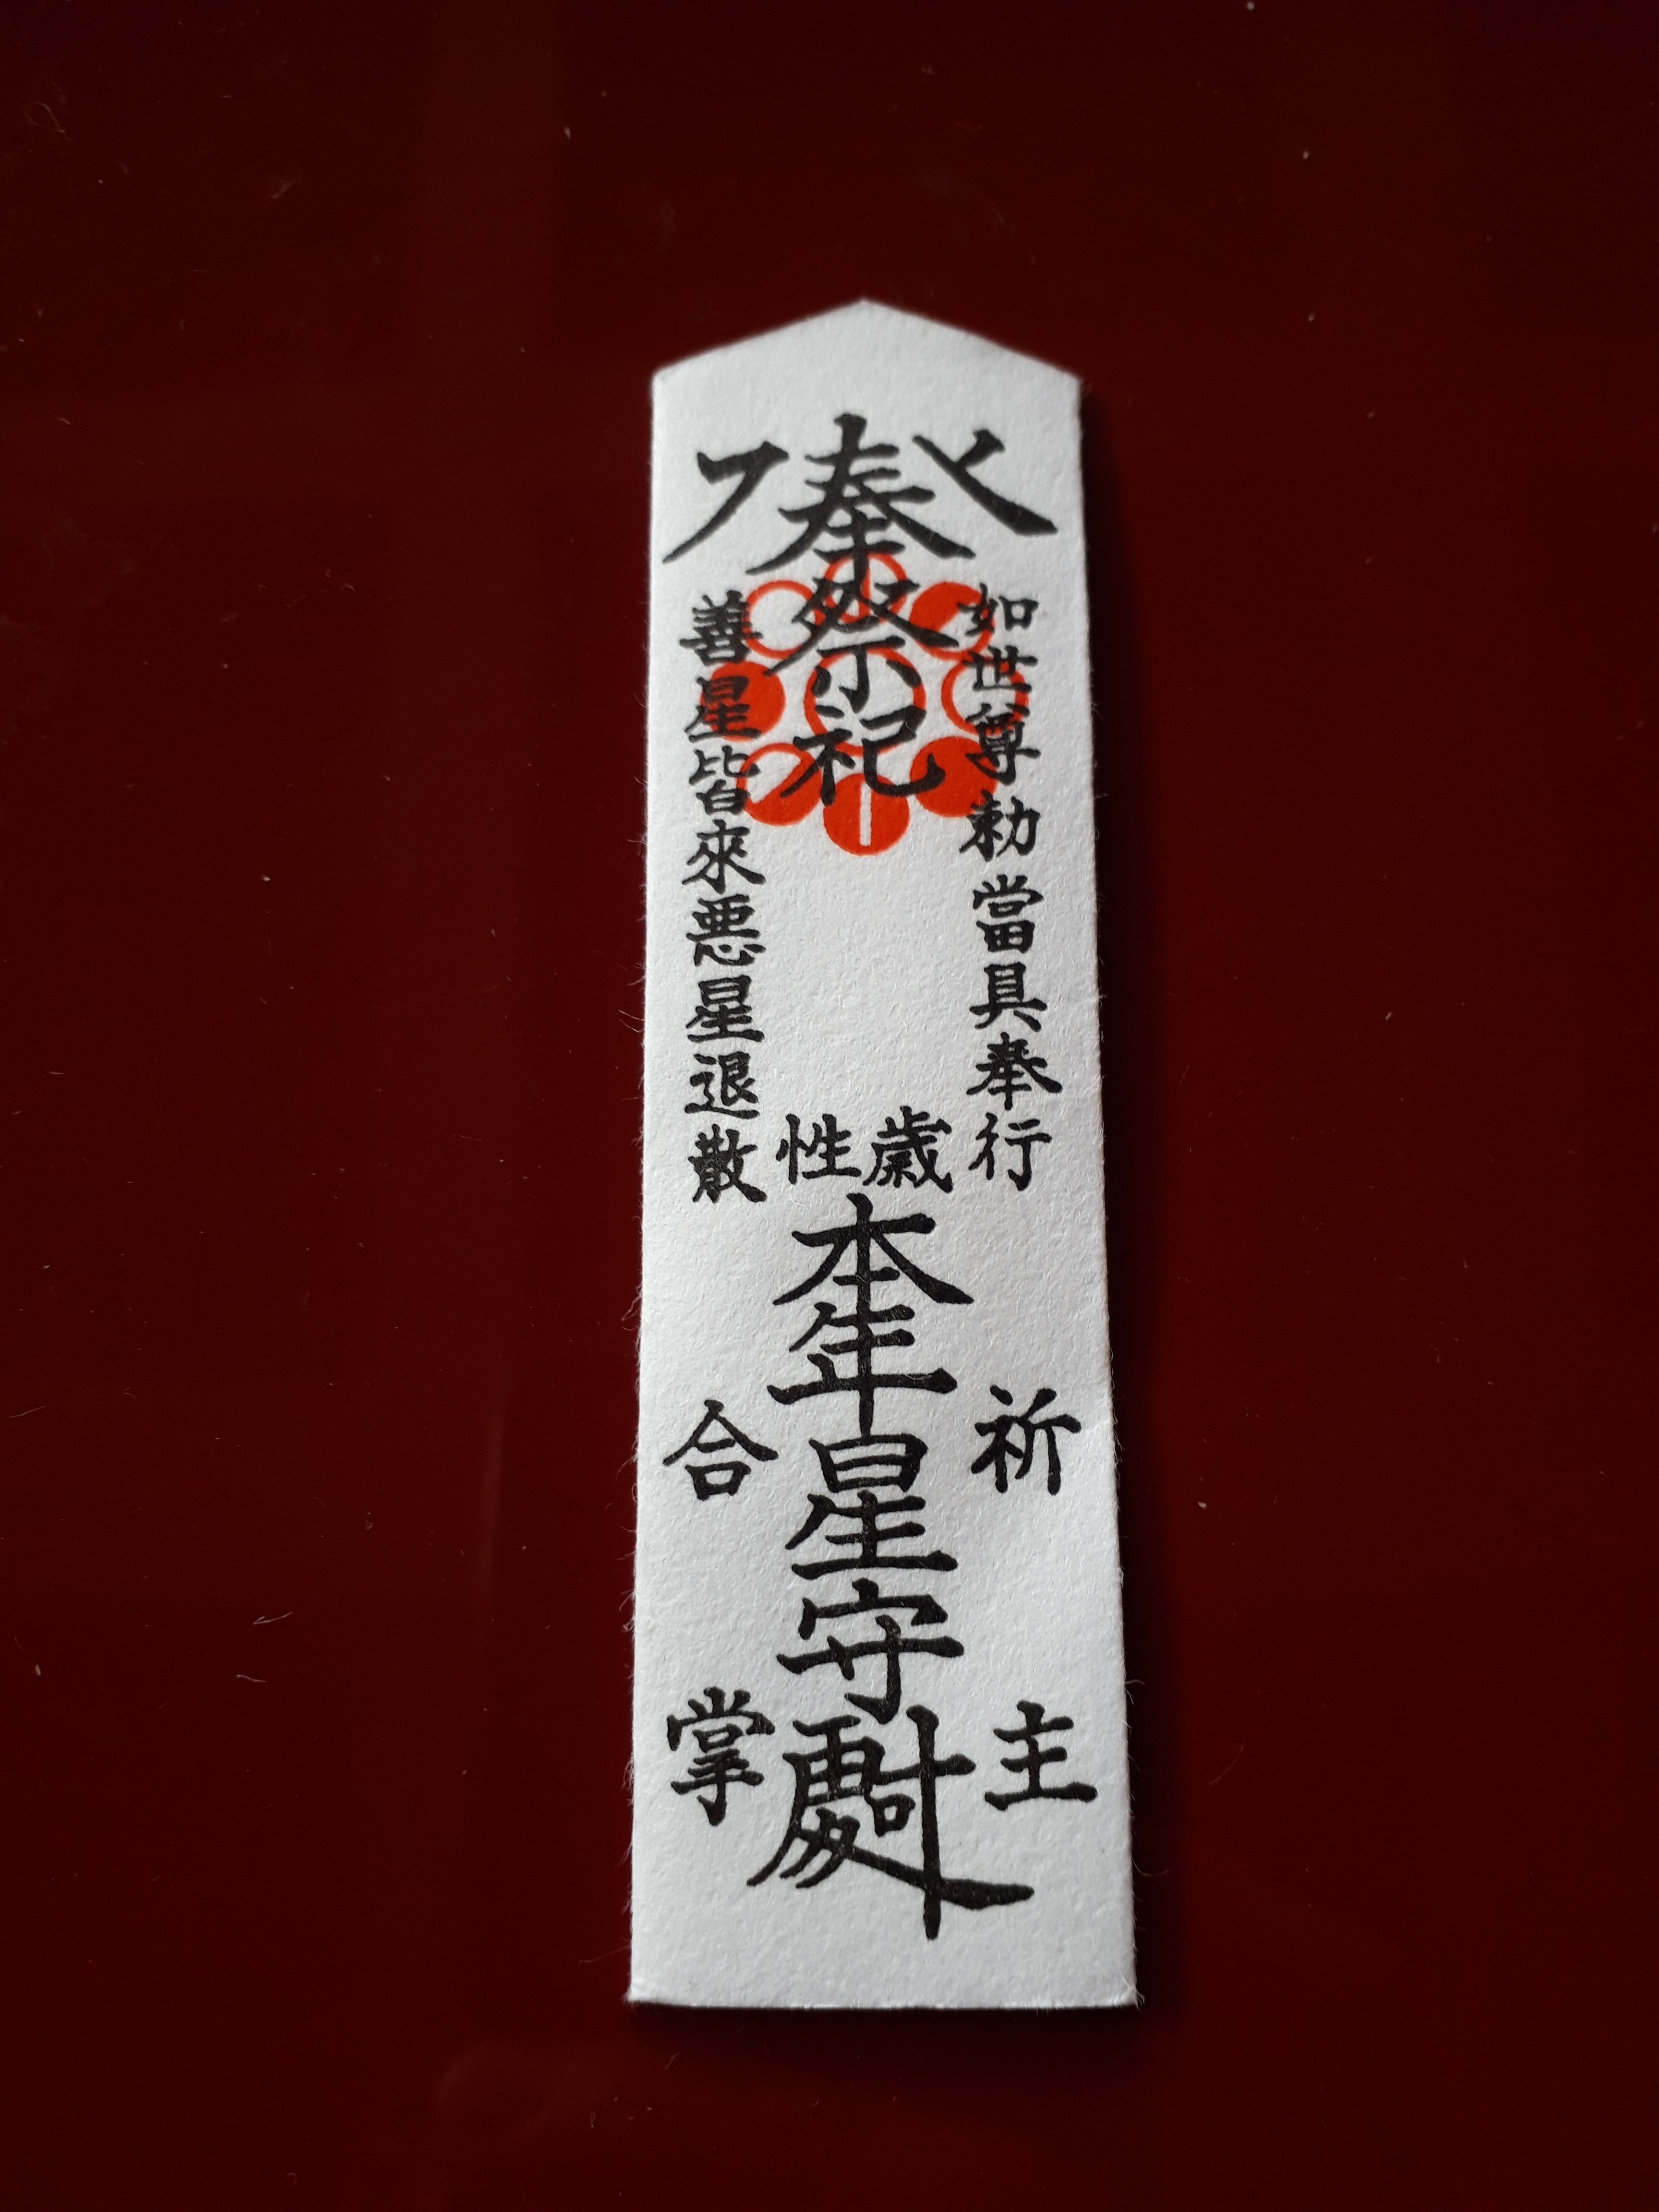 奉祭祀
如世尊勅當具奉行
善星皆來悪星退散
歳性
本年星守
祈主
合掌